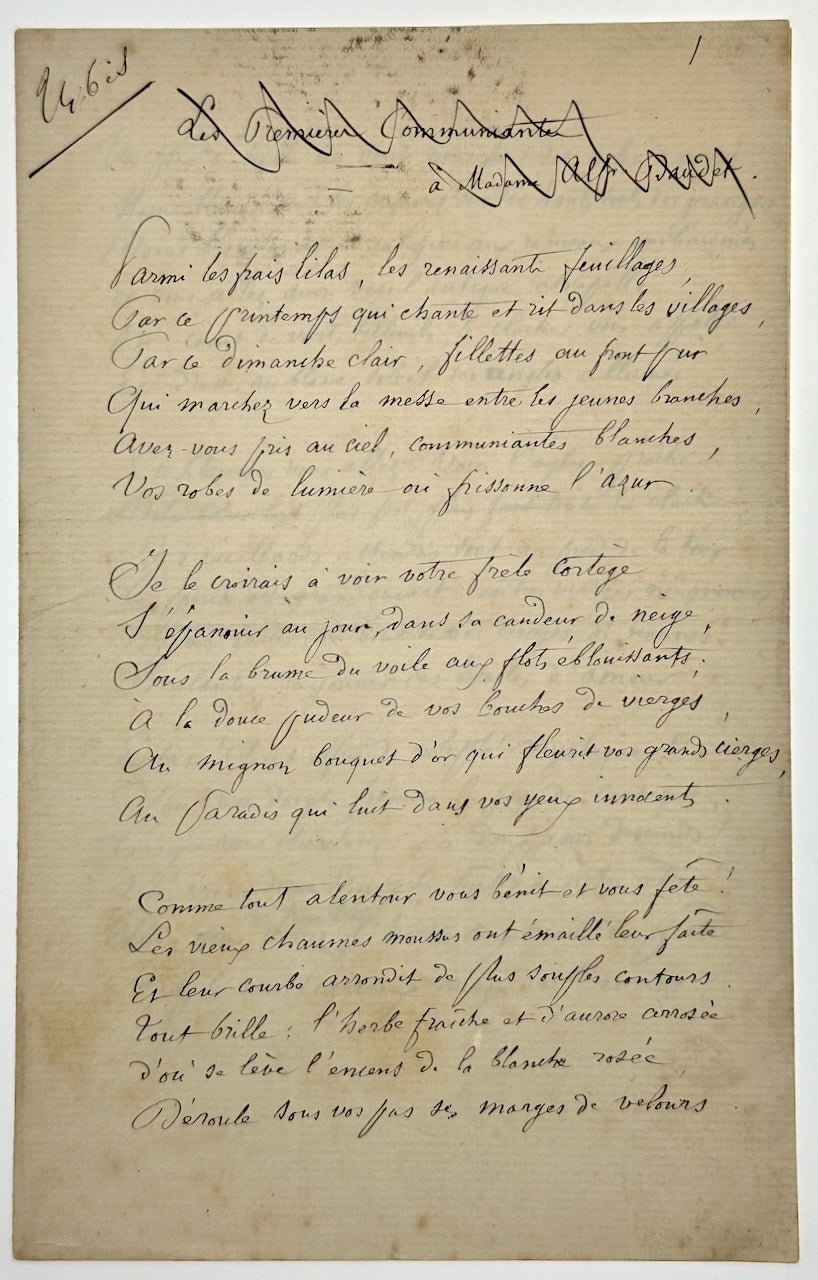 24 bis
1
Les Premières Communiantes
à Madame Alf. Baudet.
Parmi les frais lilas, les renaissants feuillages,
Par ce printemps qui chante et rit dans les villages,
Par ce dimanche clair, fillettes au front pur
Qui marchez vers la messe entre les jeunes branches,
Avez-vous pris au ciel, communiantes blanches,
Vos robes de lumière où frissonne l'azur.
Je le croirais à voir votre frêle cortège
S'épanouir au jour, dans sa candeur de neige,
Sous la brume du voile aux flots éblouissants;
À la douce pudeur de vos bouches de vierges,
Au mignon bouquet d'or qui fleurit vos grands cierges,
Au Paradis qui luit dans vos yeux innocents.
Comme tout alentour vous bénit et vous fête!
Les vieux chaumes moussus ont émaillé leur faîte
Et leur courbe arrondit de plus souples contours.
Tout brille : l'herbe fraîche et d'aurore arrosée
d'où se lève l'encens de la blanche rosée
Déroule sous vos pas ses marges de velours.